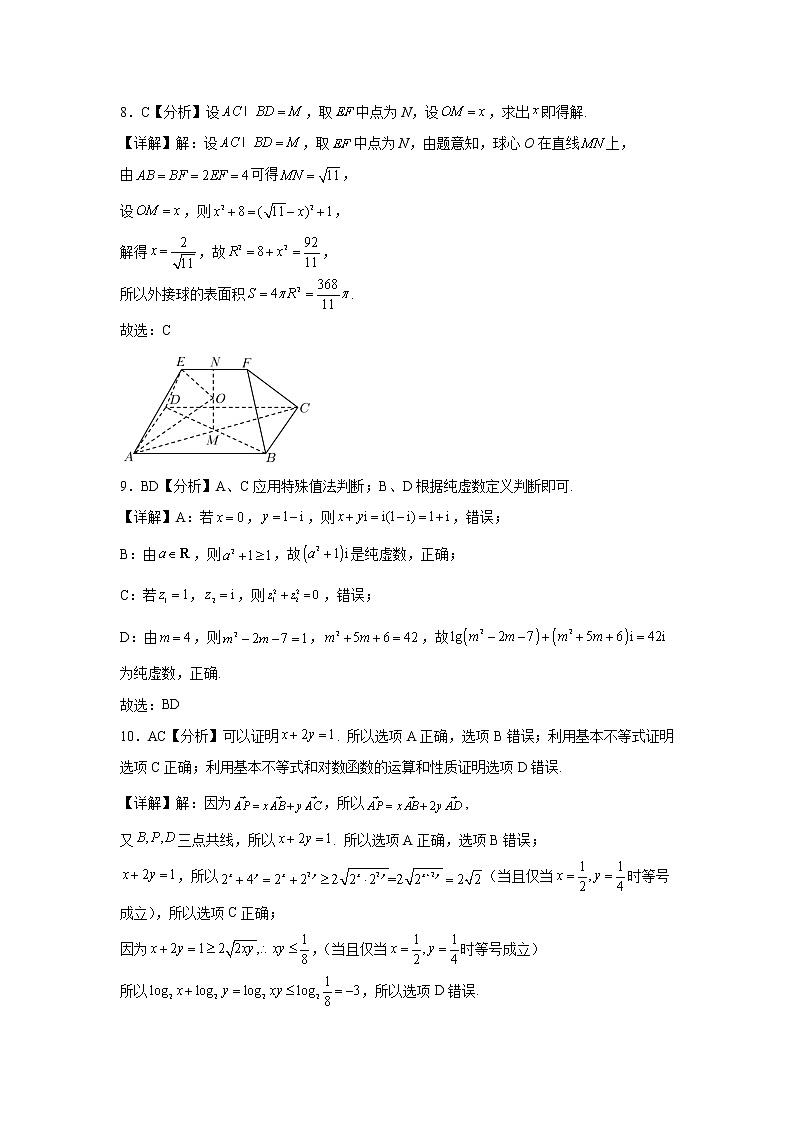 8．C【分析】设AC∣ BD=M，取EF中点为N，设OM=x，求出x即得解.
【详解】解：设AC∣ BD=M，取EF中点为N，由题意知，球心O在直线MN上，
由AB=BF=2EF=4可得MN=√11，
设OM=x，则x²+8=(√11−x)²+1，
解得x=2/√11，故R²=8+x²=92/11，
所以外接球的表面积S=4πR²=368/11π.
故选：C
E N F
D O C
M
A B
9．BD【分析】A、C应用特殊值法判断；B、D根据纯虚数定义判断即可.
【详解】A：若x=0，y=1−i，则x+yi=i(1−i)=1+i，错误；
B：由a∈R，则a²+1≥1，故(a²+1)i是纯虚数，正确；
C：若z₁=1，z₂=i，则z₁²+z₂²=0，错误；
D：由m=4，则m²−2m−7=1，m²+5m+6=42，故lg(m²−2m−7)+(m²+5m+6)i=42i
为纯虚数，正确.
故选：BD
10．AC【分析】可以证明x+2y=1. 所以选项A正确，选项B错误；利用基本不等式证明
选项C正确；利用基本不等式和对数函数的运算和性质证明选项D错误.
【详解】解：因为AP⃗=xAB⃗+yAC⃗，所以AP⃗=xAB⃗+2yAD⃗，
又B,P,D三点共线，所以x+2y=1. 所以选项A正确，选项B错误；
x+2y=1，所以2ˣ+4ʸ=2ˣ+2²ʸ≥2√(2ˣ·2²ʸ)=2√(2ˣ⁺²ʸ)=2√2（当且仅当x=1/2,y=1/4时等号
成立），所以选项C正确；
因为x+2y=1≥2√(2xy),∴xy≤1/8，（当且仅当x=1/2,y=1/4时等号成立）
所以log₂x+log₂y=log₂xy≤log₂1/8=−3，所以选项D错误.